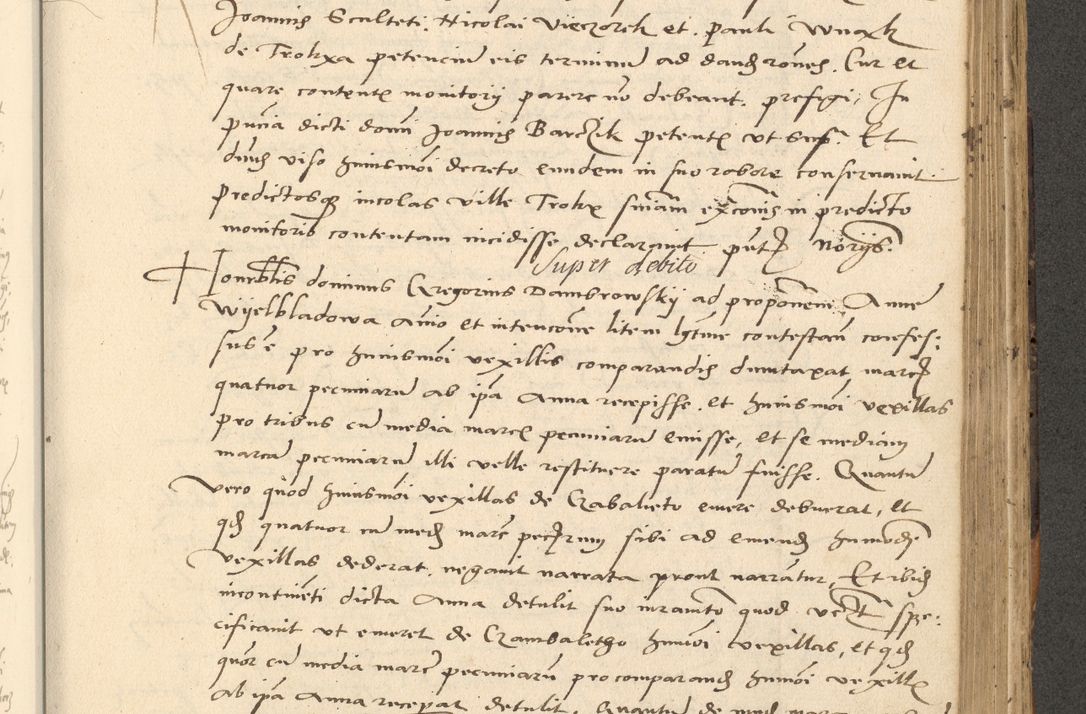 Joannis Sculteti. Nicolai Vieczorek et. pauli Wnąk
de Trokxa petencium eis terminum ad dandū roneʒ. Cur et
quare contentʒ monitorij parere nō debeant. prefigi, In
pnцia dicti domi Joannis Barczik petentʒ ut supʳ. Et
dnus viso huiusmoi decreto eundem in suo robore conseruauit
predictosqʒ incolas ville Trokx sniam excōnis in predicto
monitorio contentam incidisse declarauit putʒ Norijs
Super debito
Honorblis dominus Gregorius Dambrowskij ad proponem Anne
Wijelbladowa Anio et intencone litem lgtme contestan confes:
sus ē pro huiusmoi vexillis comparandis dumtaxat marcʒ
quatuor pecuniarū ab ipa Anna recepisse. et huiusmoi vexillas
pro tribus cū media marcʒ pecuniarū emisse, et se mediam
marcā pecuniarū illi velle restituere paratū fuisse. Quantū
vero quod huiusmoi vexillas de Czabaleto emere debuerat, et
qd quatuor cū med marc pecʒrum sibi ad emend humodi
vexillas dederat. negauit narrata prout narrantur, Et ibid
incontinēti dicta Anna detulit suo iuramto quod spe:
cificauit ut emeret de Czambaletho humōi vexillas, et qd
quor cū media marc pecuniarū pro comparand humōi vexillʒ
ab ipa Anna receperat detulit. Quantum de med marc